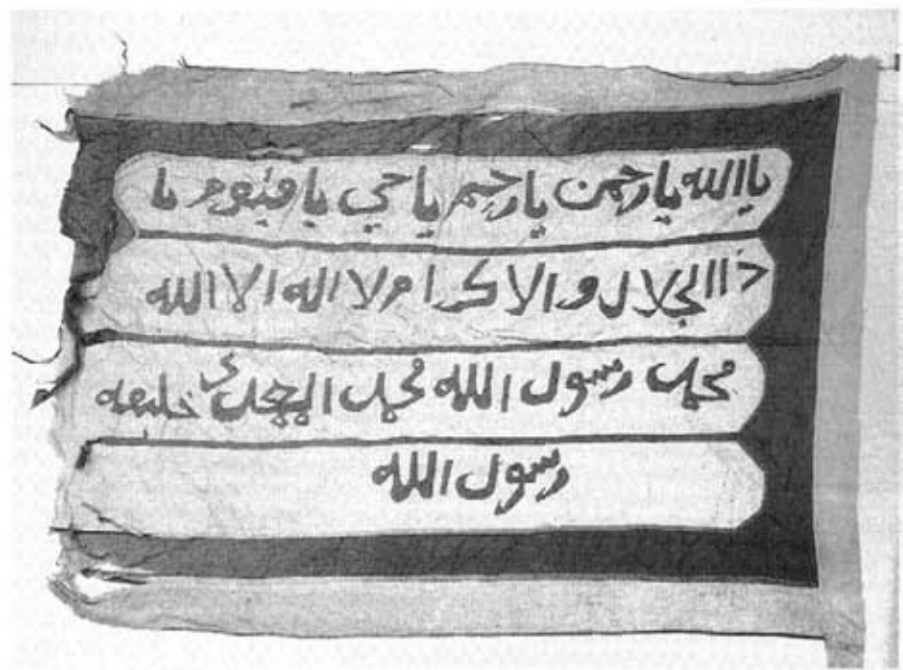 يا الله يا رحمن يا رحيم يا حي يا قيوم يا
ذا الجلال والاكرام لا اله الا الله
محمد رسول الله محمد المهدى خليفه
رسول الله